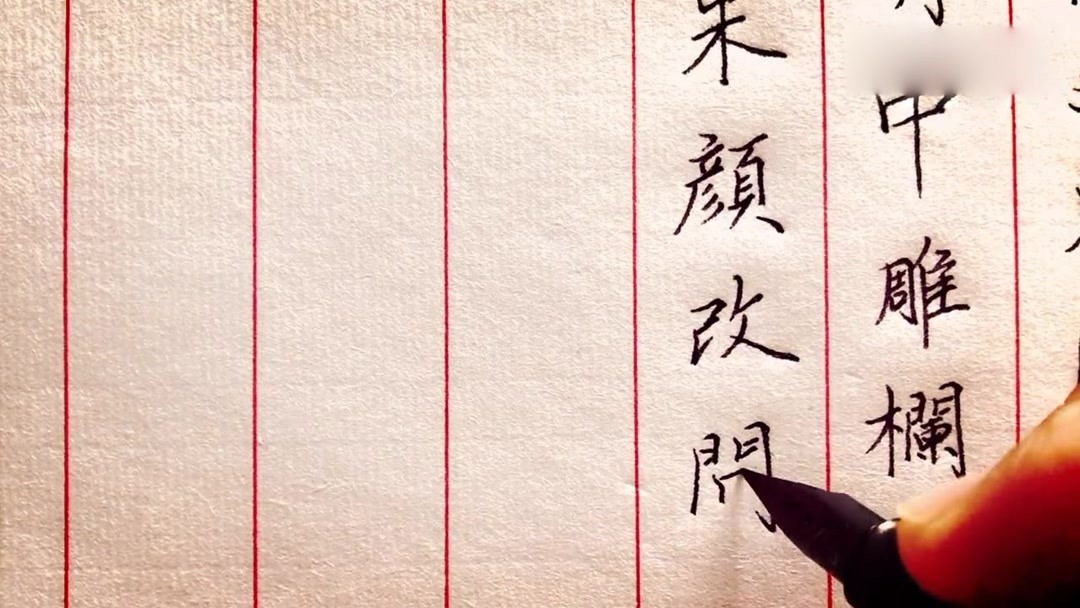 中雕欄
朱顏改問